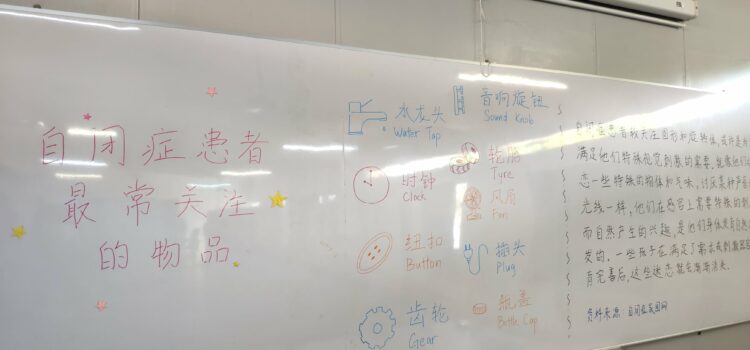 自闭症患者
最常关注
的物品
水龙头
Water Tap
音响旋钮
Sound Knob
时钟
Clock
轮胎
Tyre
风扇
Fan
纽扣
Button
插头
Plug
齿轮
Gear
瓶盖
Bottle Cap
自闭症患者较关注圆形和旋转体,或许是为
满足他们特殊视觉刺激的需要,就像他们
恋一些特殊的物体和气味,讨厌某种声音
光线一样,他们在感官上需要特殊的刺
而自然产生的兴趣,是他们身体里自然
发的。一些孩子在满足了需求或刺激
育完善后,这些迷恋就会渐渐消失。
资料来源:自闭症家园网